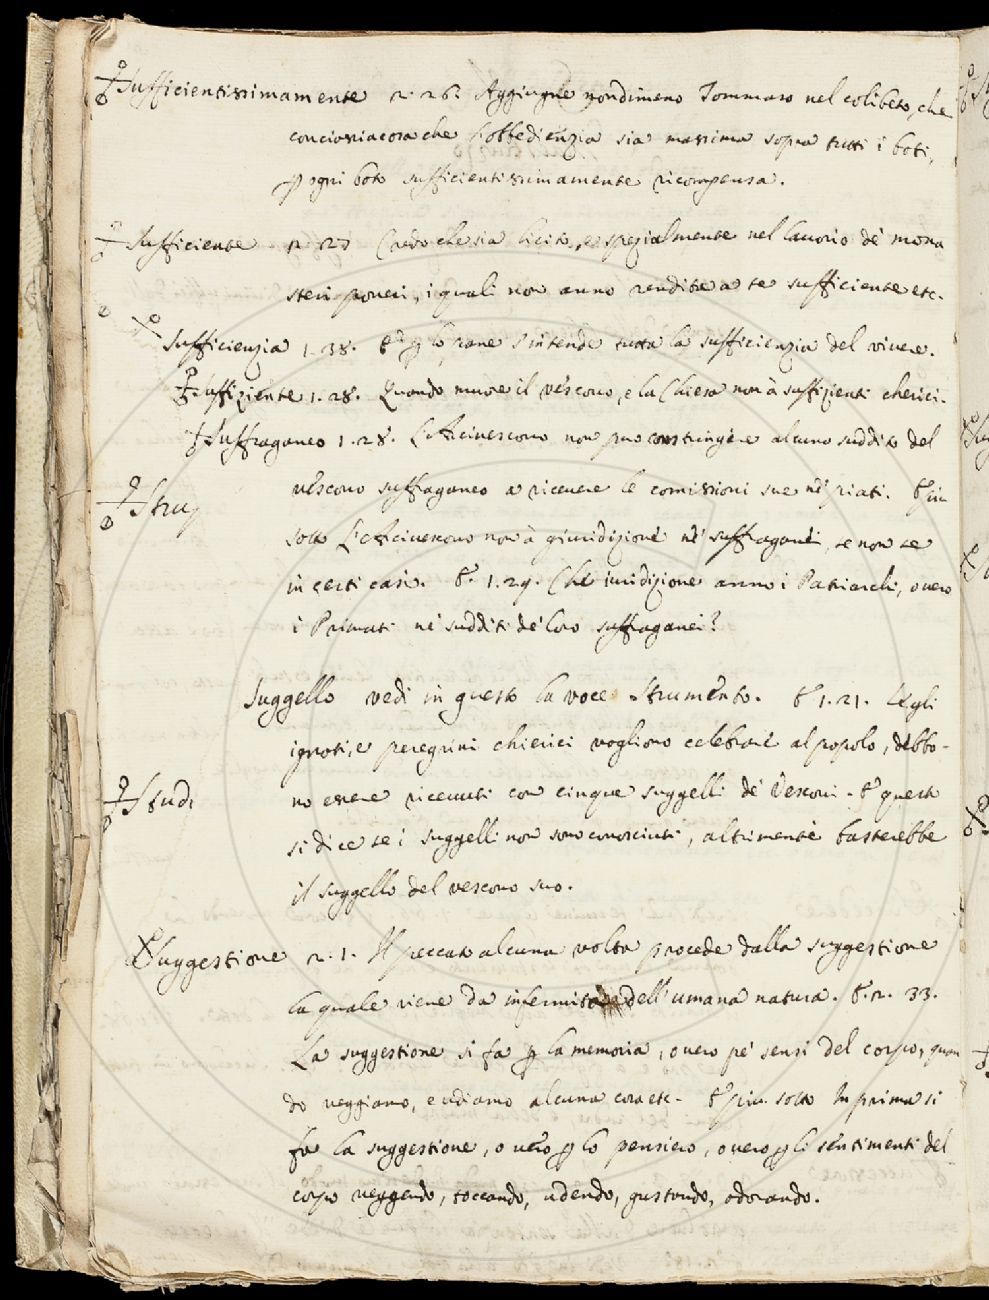 Sufficientissimamente 2. 26. Aggiugne nondimeno Tommaso nel colibeto, che
conciossiacosa che l'obbedienzia sia massima sopra tutti i boti,
ꝑ ogni boto sufficientissimamente ricompensa.
Sufficiente 2. 27 Credo che sia licito, e spezialmente nel lavorio de' mona
steri poveri, i quali non anno rendite a se sufficiente etc.
Sufficienzia 1. 38. ꝑ lo pane s'intende tutta la sufficienzia del vivere.
Suffiziente 1. 28. Quando muore il vescovo, e la Chiesa non à suffizienti cherici.
Suffraganeo 1. 28. L'Arcivescovo non può costringere alcuno suddito del
vescovo suffraganeo a ricevere le comissioni sue nè piati. E più
Stru
sotto L'Arcivescovo non à giuridizione nè suffraganei, se non se
in certi casi. E. 1. 29. Che iuridizione anno i Patriarchi, overo
i Primati nè sudditi de' loro suffraganei?
Suggello vedi in questo la voce Strumento. E 1. 21. Se gli
ignoti, e peregrini chierici vogliono celebrare al popolo, debbo-
no essere ricevuti con cinque suggelli de' Vescovi. E questo
Studi
si dice se i suggelli non sono conosciuti, altrimente basterebbe
il suggello del vescovo suo.
Suggestione 2. 1. Il peccato alcuna volta procede dalla suggestione
la quale viene da infermità dell'umana natura. E. 2. 33.
La suggestione si fa ꝑ la memoria, overo pe' sensi del corpo, quan
do veggiamo, e udiamo alcuna cosa etc. E più sotto In prima si
fa la suggestione, overo ꝑ lo pensiero, overo ꝑ li sentimenti del
corpo veggendo, toccando, udendo, gustando, odorando.